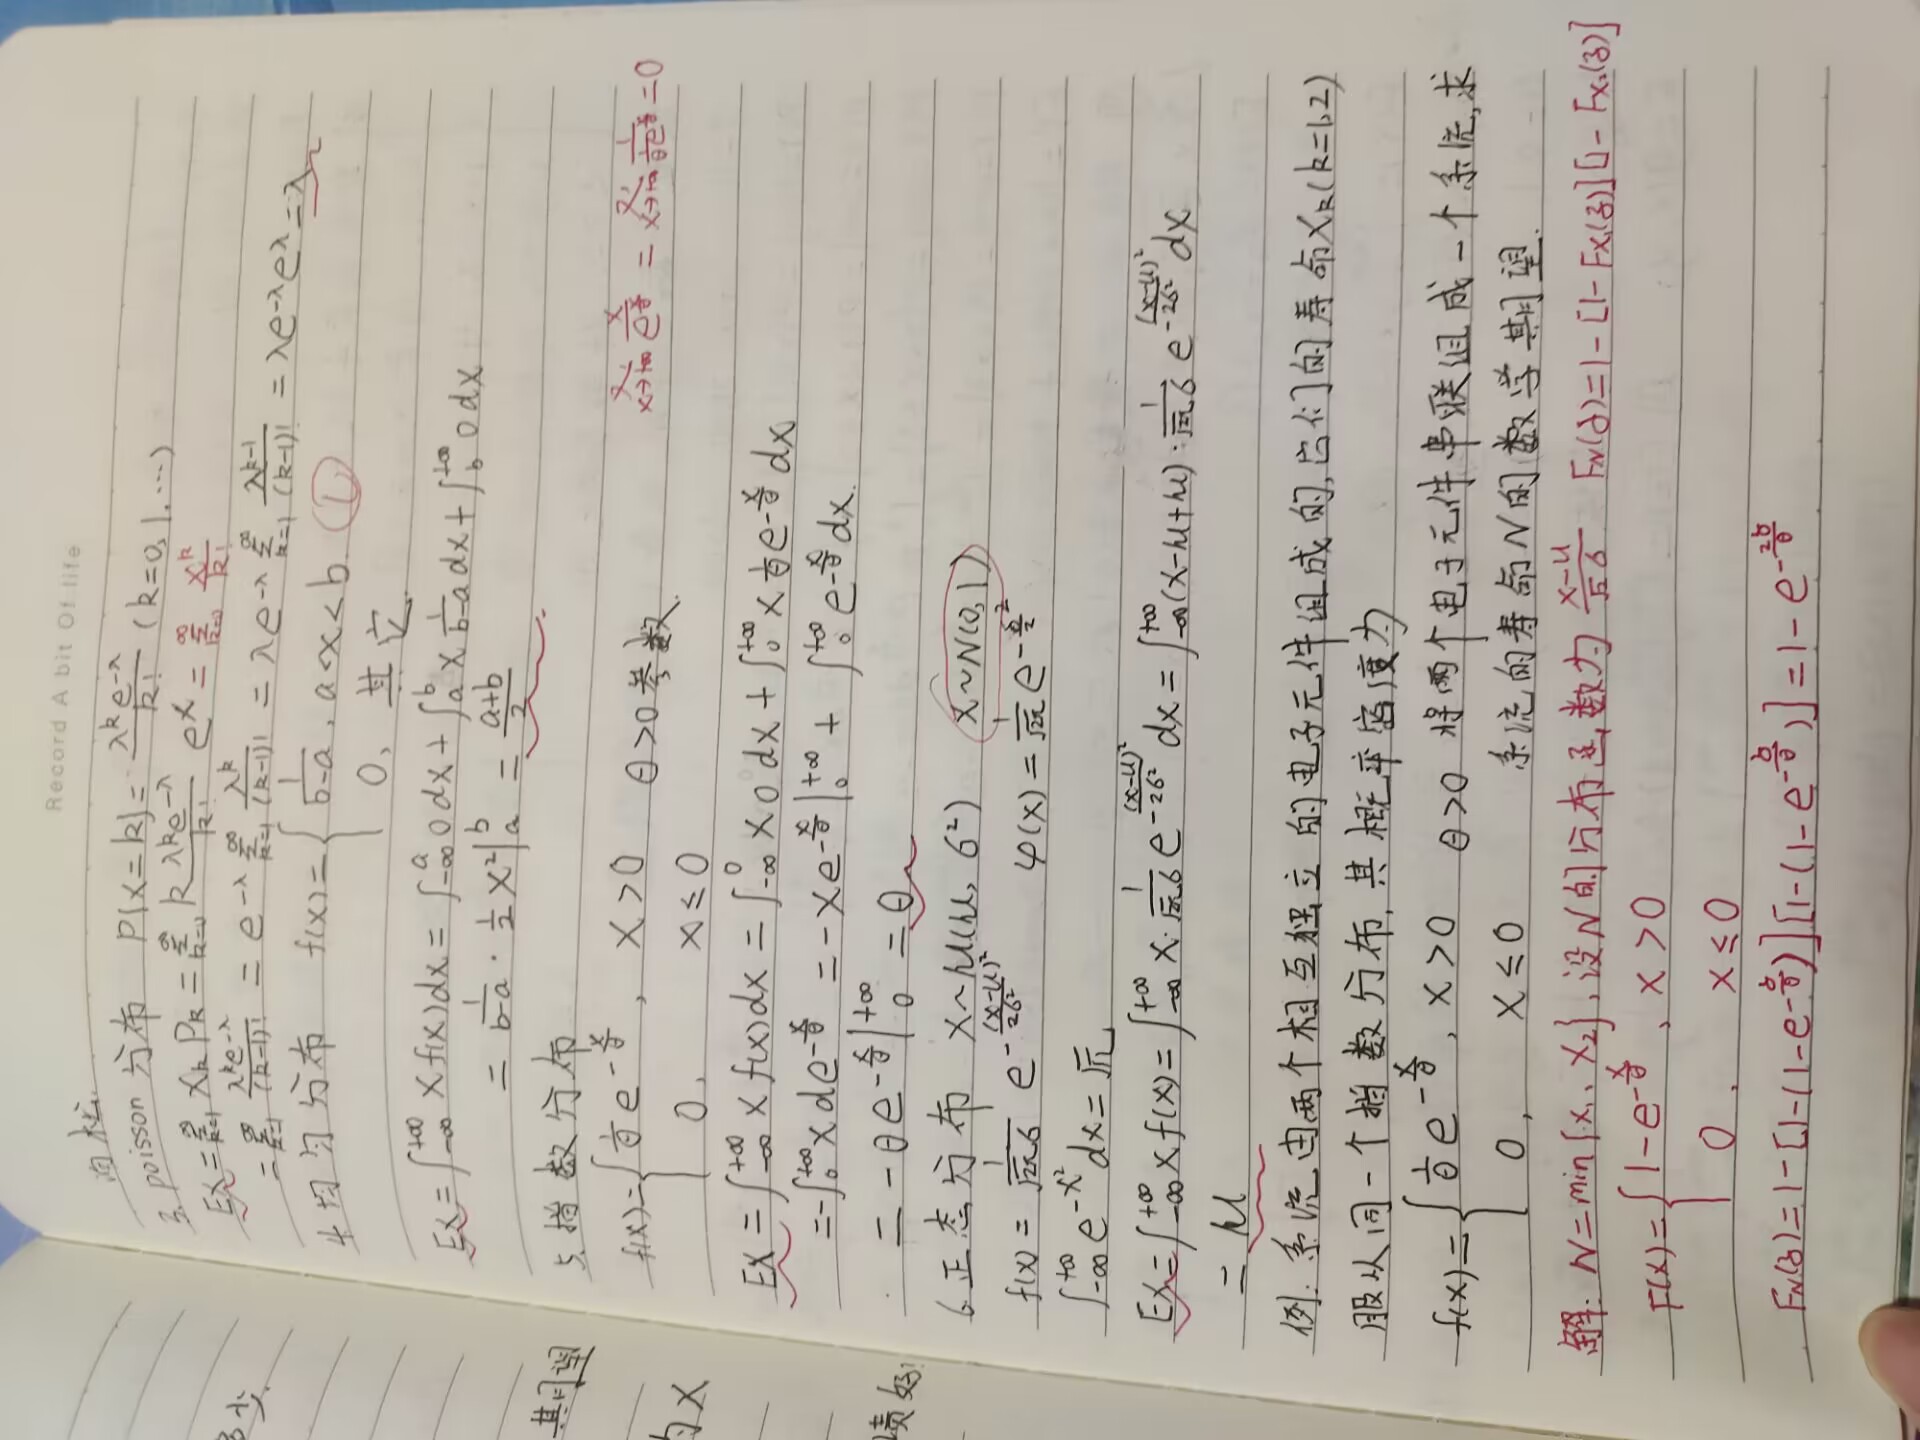 Record A bit Of life
3. poisson 分布 P{X=k}= λᵏe^-λ/k! (k=0,1,…)
EX = Σ_{k=1}^∞ x_k P_k = Σ_{k=0}^∞ k λᵏe^-λ/k! e^x = Σ_{k=0}^∞ xᵏ/k!
= Σ_{k=1}^∞ λᵏe^-λ/(k-1)! = e^-λ Σ_{k=1}^∞ λᵏ/(k-1)! = λe^-λ Σ_{k=1}^∞ λ^(k-1)/(k-1)! = λe^-λ e^λ = λ
4. 均匀分布 f(x)= { 1/(b-a), a<x<b (1)
0, 其它
EX = ∫_{-∞}^{+∞} x f(x)dx = ∫_{-∞}^a 0dx + ∫_a^b x 1/(b-a) dx + ∫_b^{+∞} 0dx
= 1/(b-a) · 1/2 x² |_a^b = (a+b)/2
5. 指数分布
f(x)= { 1/θ e^(-x/θ), x>0 θ>0参数.
0, x≤0
EX = ∫_{-∞}^{+∞} x f(x)dx = ∫_{-∞}^0 x0dx + ∫_0^{+∞} x 1/θ e^(-x/θ) dx
= -∫_0^{+∞} x de^(-x/θ) = -xe^(-x/θ) |_0^{+∞} + ∫_0^{+∞} e^(-x/θ) dx.
= -θe^(-x/θ) |_0^{+∞} = θ
6. 正态分布 X~N(μ, σ²) X~N(0,1)
f(x) = 1/(√2π σ) e^(-(x-μ)²/2σ²) φ(x) = 1/√2π e^(-x²/2)
∫_{-∞}^{+∞} e^(-x²) dx = √π
EX = ∫_{-∞}^{+∞} x f(x) = ∫_{-∞}^{+∞} x · 1/(√2π σ) e^(-(x-μ)²/2σ²) dx = ∫_{-∞}^{+∞} (x-μ+μ) · 1/(√2π σ) e^(-(x-μ)²/2σ²) dx
= μ
例: 系统由两个相互独立的电子元件组成的,它们的寿命X_k(k=1,2)
服从同一个指数分布,其概率密度为
f(x)= { 1/θ e^(-x/θ), x>0 θ>0 将两个电子元件串联组成一个系统,求
0, x≤0 系统的寿命N的数学期望.
解: N=min{X₁, X₂}, 设N的分布函数为 F_N(z)=1-[1-F_X₁(z)][1-F_X₂(z)]
F(x)= { 1-e^(-x/θ), x>0
0, x≤0
F_N(z)=1-[1-(1-e^(-z/θ))][1-(1-e^(-z/θ))]=1-e^(-2z/θ)
其期望
为X
绩好